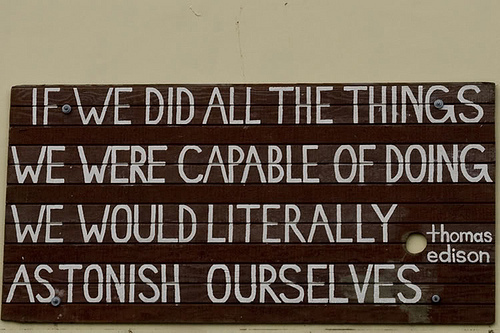 IF WE DID ALL THE THINGS
WE WERE CAPABLE OF DOING
WE WOULD LITERALLY
ASTONISH OURSELVES
thomas
edison